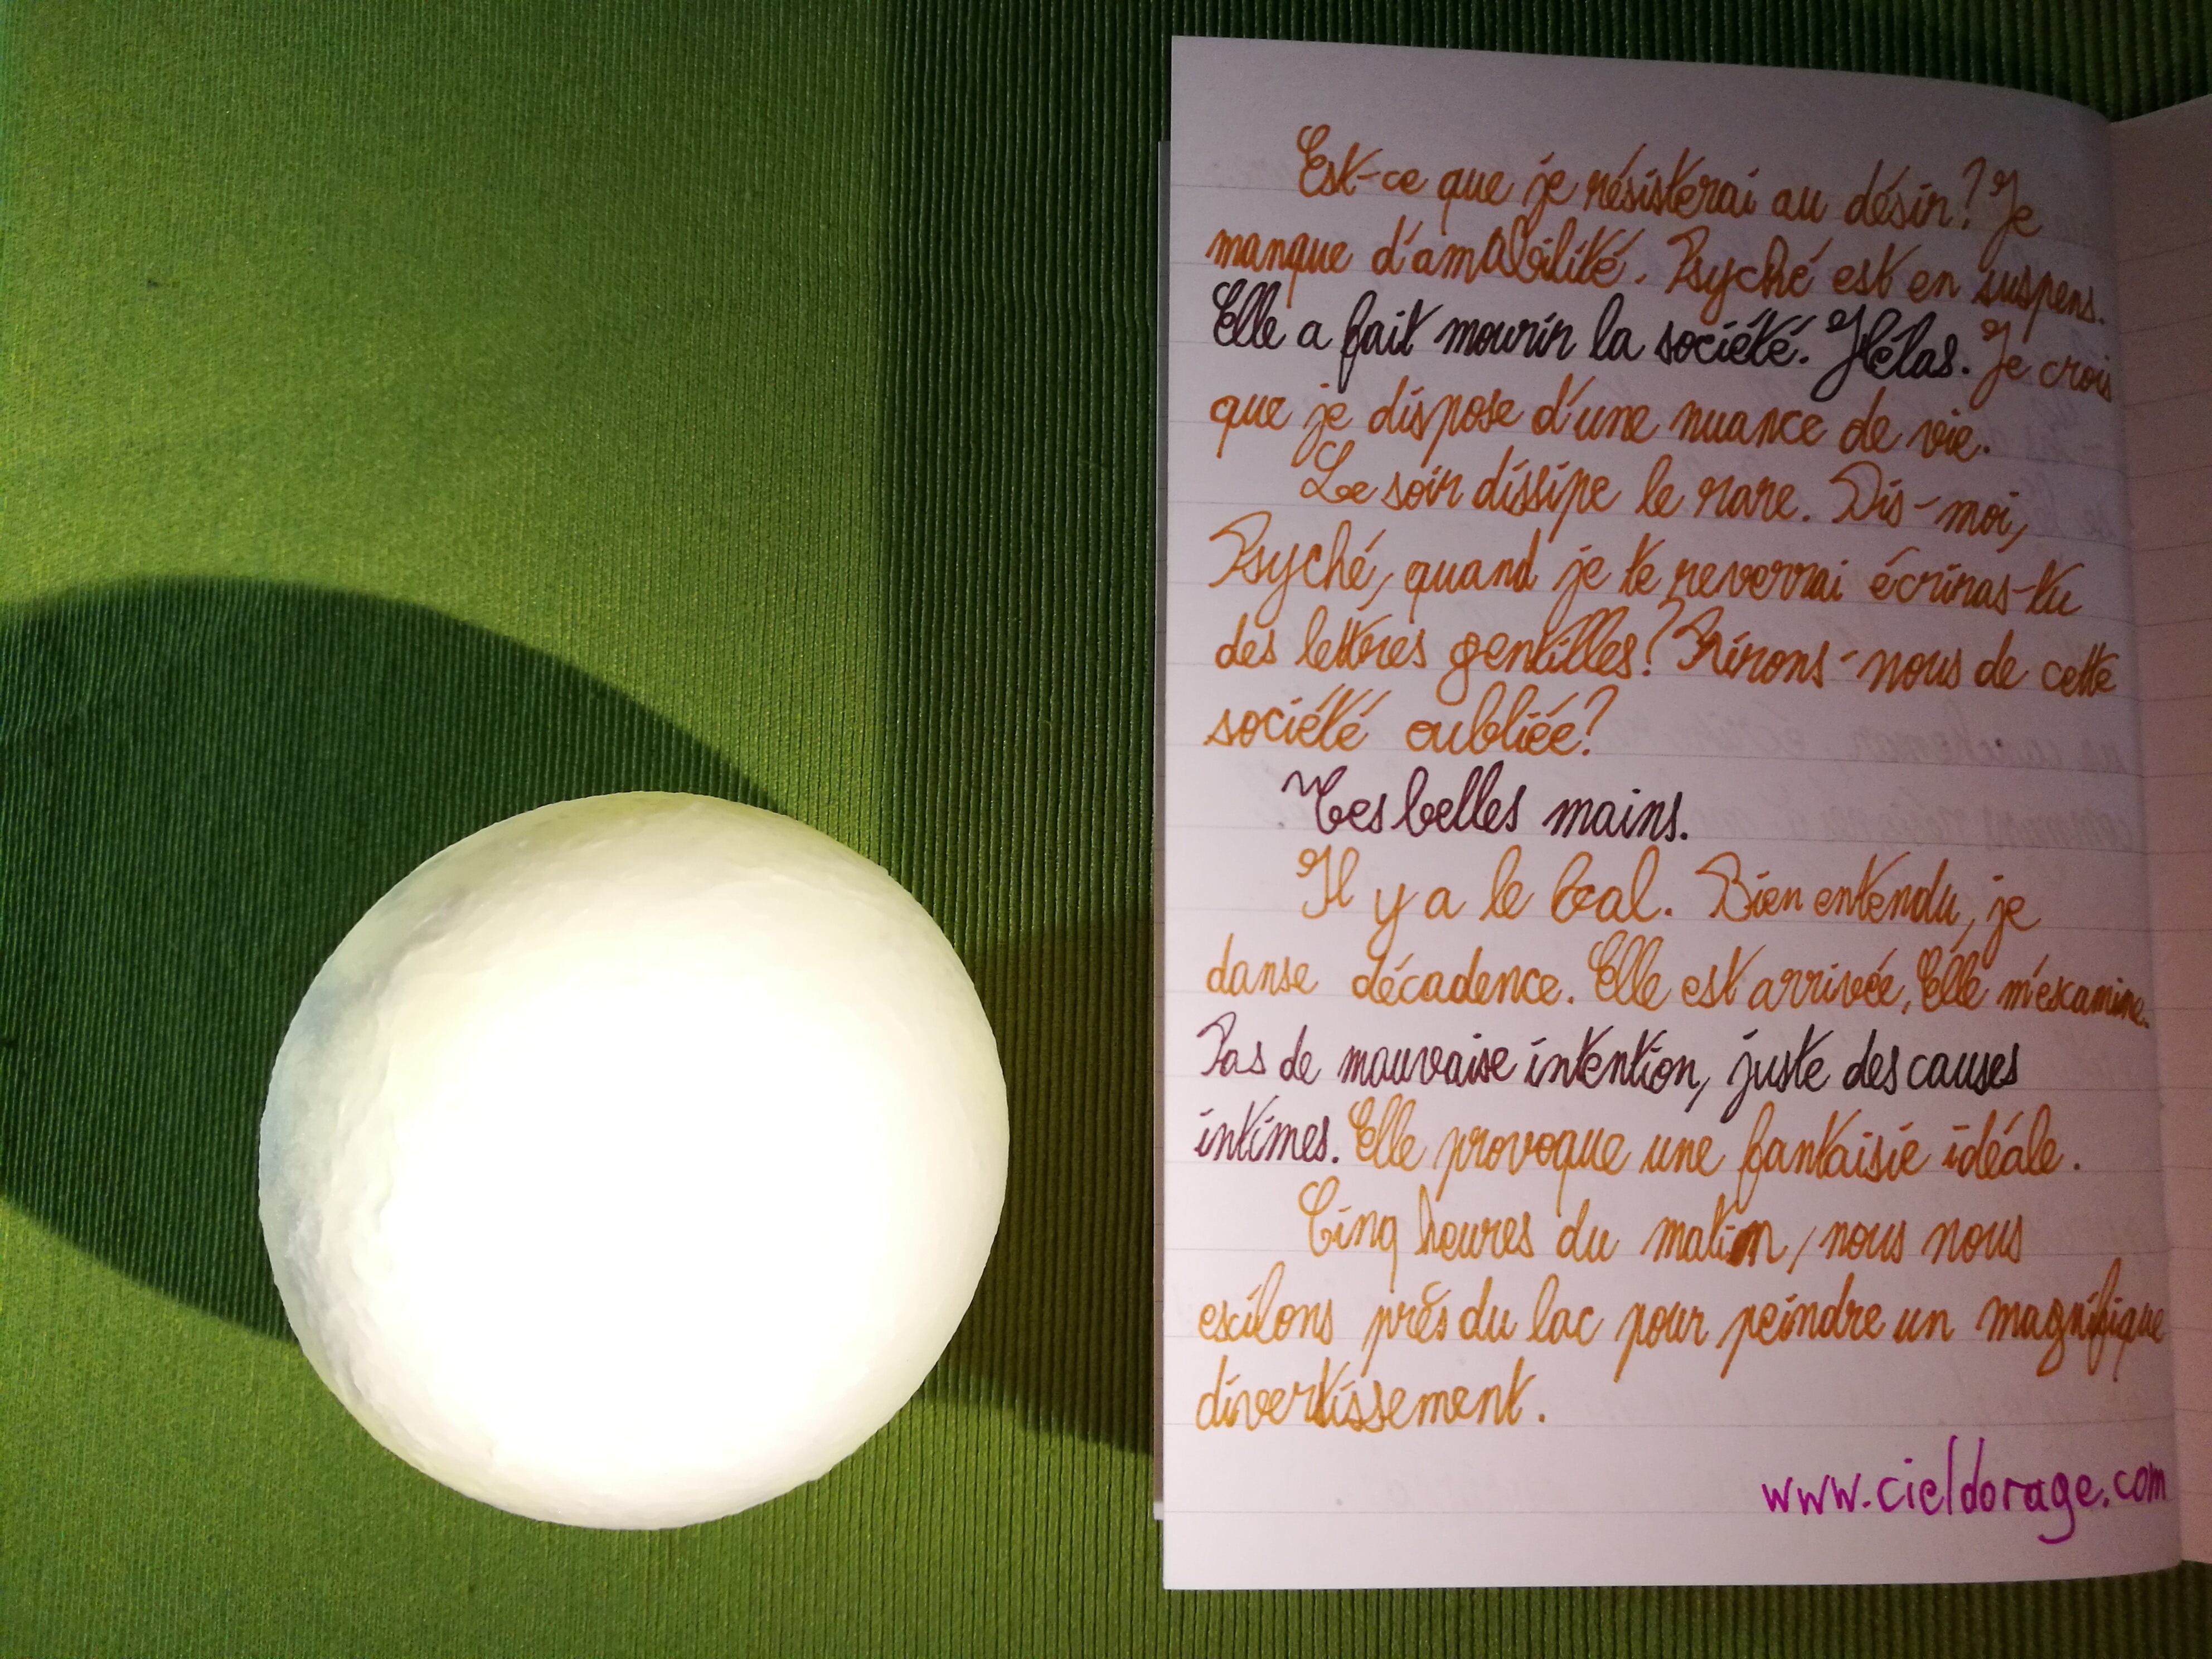 Est-ce que je résisterai au désir? Je
manque d'amabilité. Psyché est en suspens.
Elle a fait mourir la société. Hélas. Je crois
que je dispose d'une nuance de vie.
Le soir dissipe le rare. Dis-moi,
Psyché, quand je te reverrai écriras-tu
des lettres gentilles? Rirons-nous de cette
société oubliée?
Tes belles mains.
Il y a le bal. Bien entendu, je
danse décadence. Elle est arrivée. Elle m'examine.
Pas de mauvaise intention, juste des causes
intimes. Elle provoque une fantaisie idéale.
Cinq heures du matin, nous nous
exilons près du lac pour peindre un magnifique
divertissement.
www.cieldorage.com